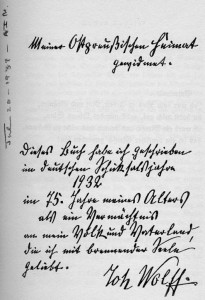 Meiner Ostpreußischen Heimat
gewidmet.
Dieses Buch habe ich geschrieben
im deutschen Schicksalsjahre
1932
im 75. Jahre meines Alters
als ein Vermächtnis
an mein Volk und Vaterland,
die ich mit brennender Seele
geliebt.
Joh Wolff.